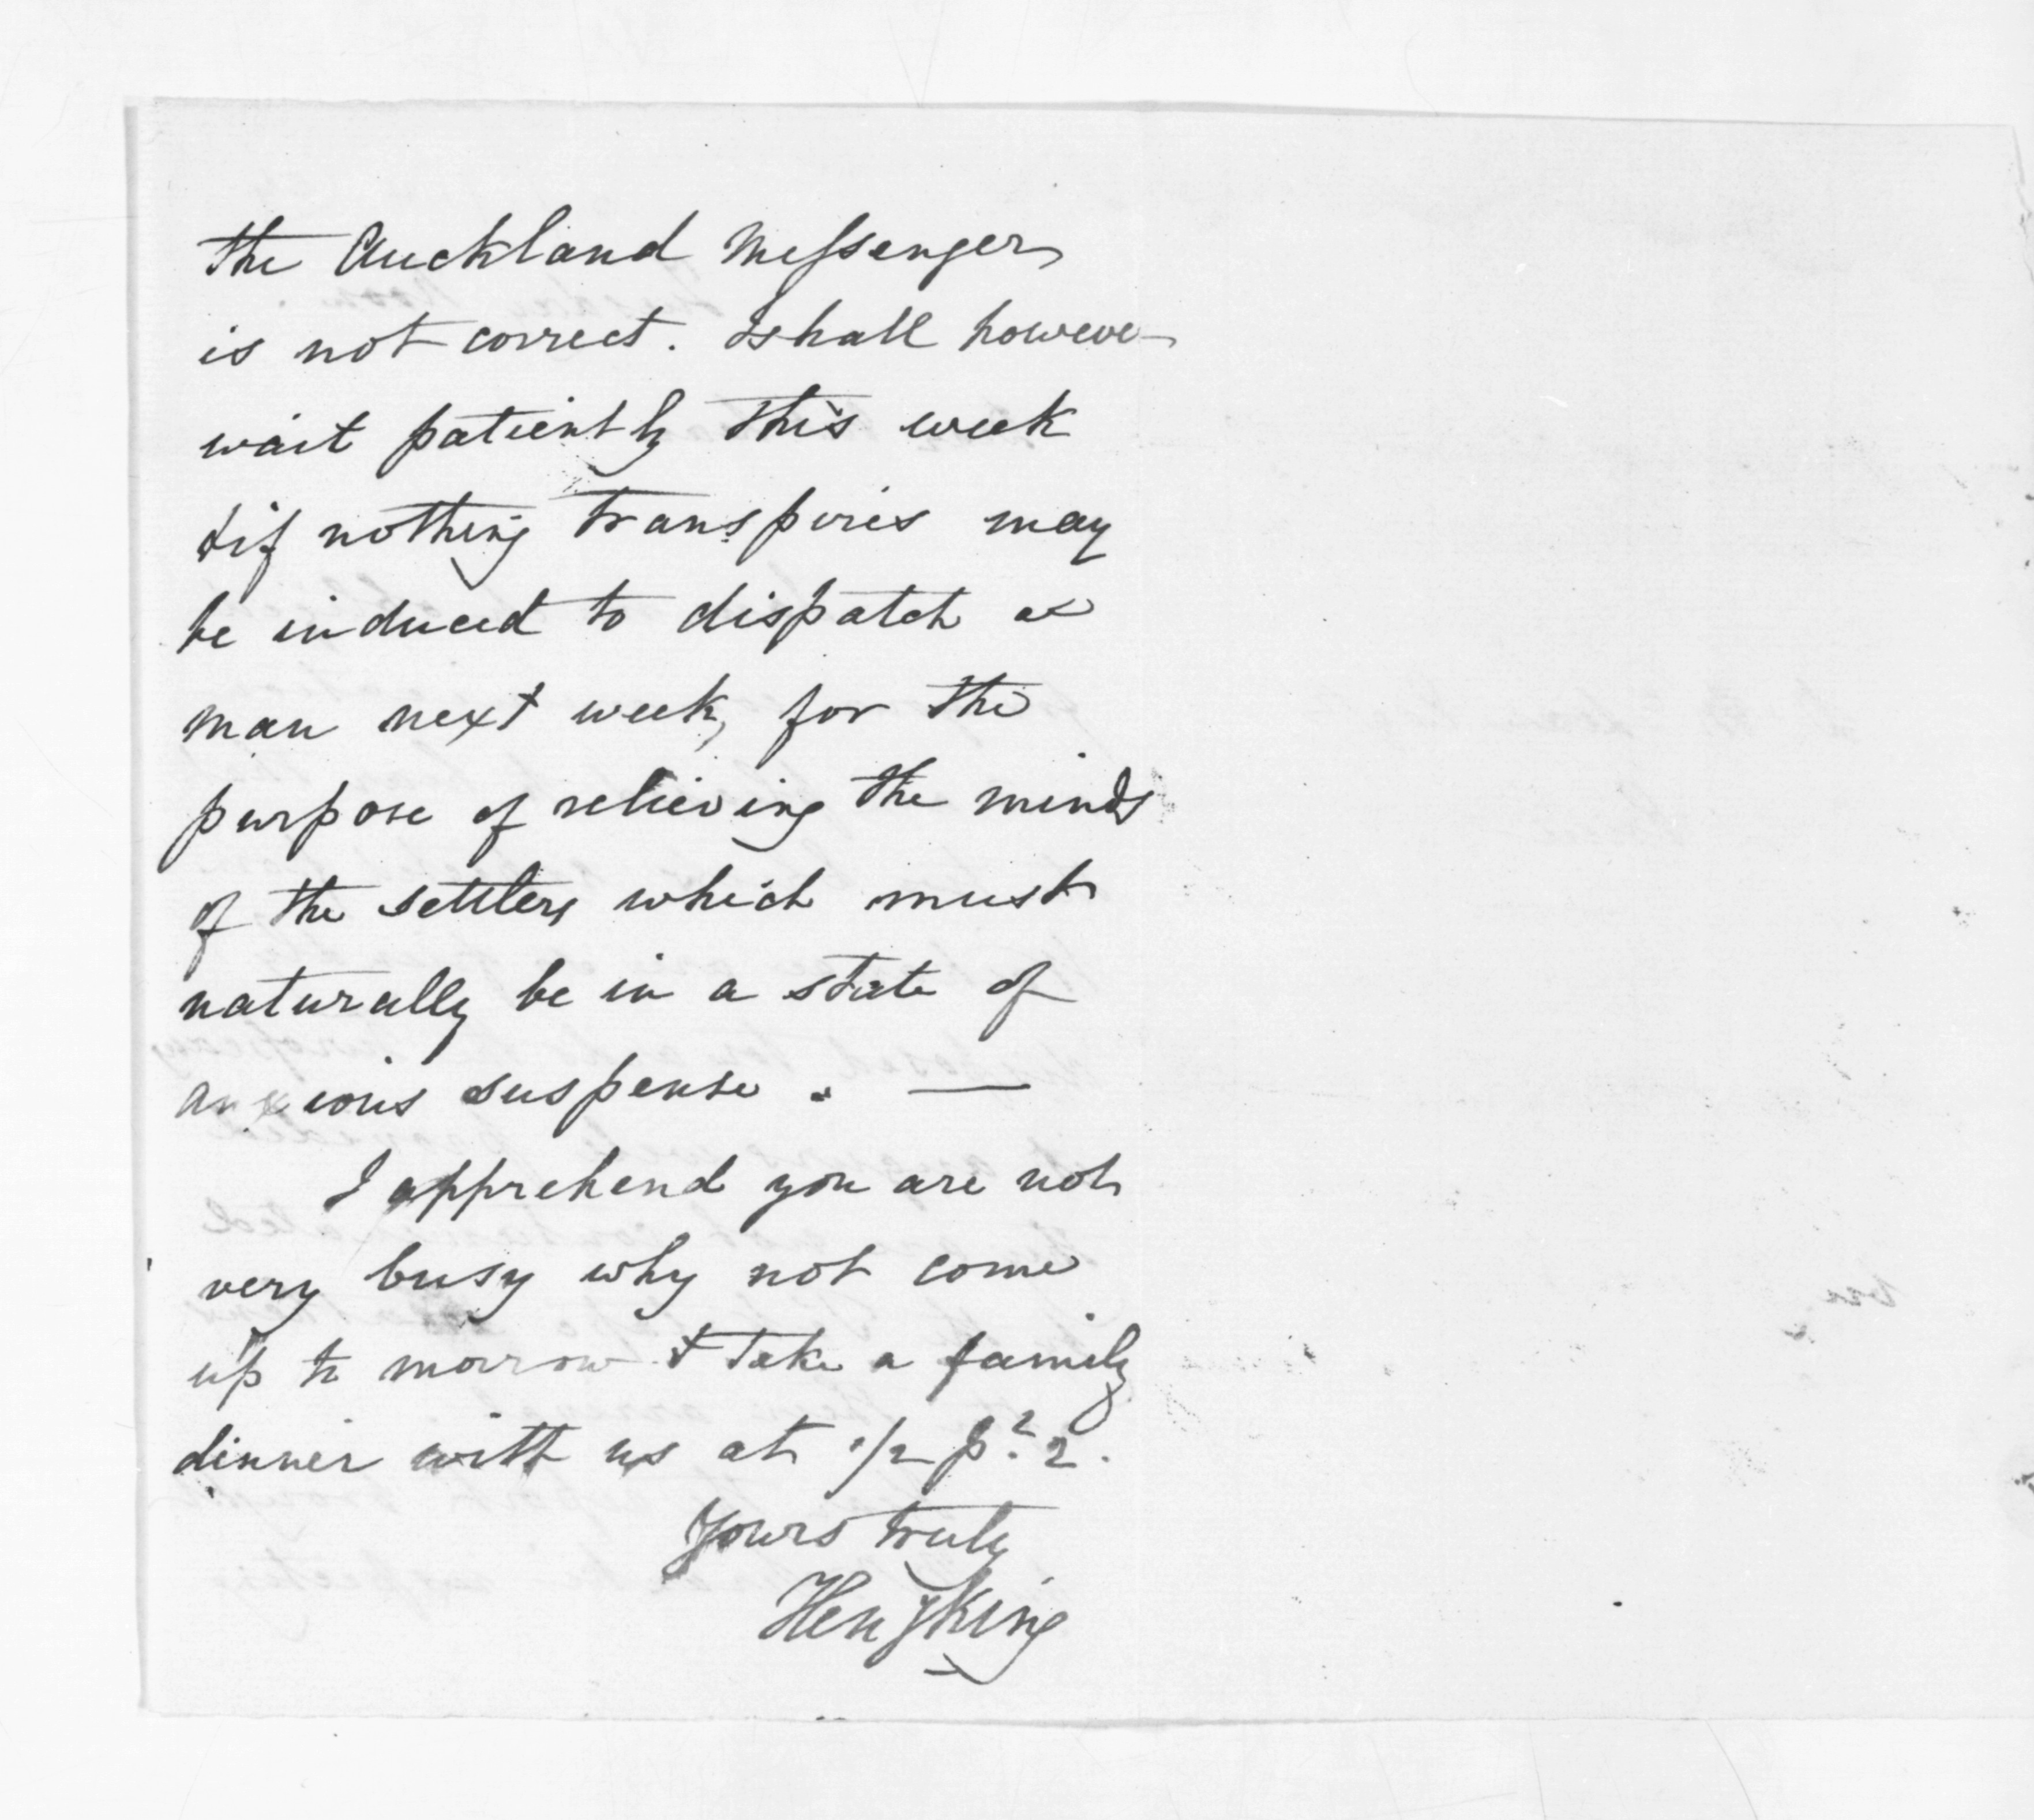 the Auckland Messenger
is not correct. I shall however
wait patiently this week
& if nothing transpires may
be induced to dispatch a
man next week, for the
purpose of relieving the minds
of the settlers which must
naturally be in a state of
anxious suspense. —
I apprehend you are not
very busy why not come
up to morrow & take a family
dinner with us at 1/2 p. 2.
Yours truly
Hen King